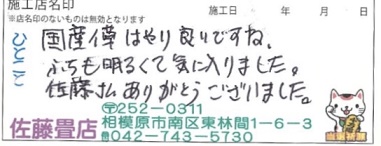 施工店名印
※店名印のないものは無効となります
施工日　年　月　日
国産イ草はやり良いですね。
ふちも明るくて気に入りました。
佐藤さんありがとうございました。
〒252-0311
佐藤畳店
相模原市南区東林間1-6-3
☎042-743-5730